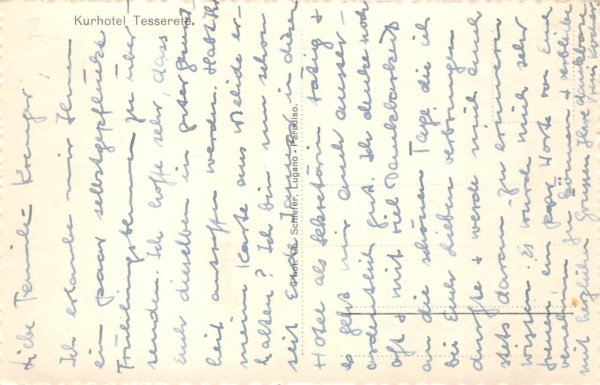 Kurhotel Tesserete.
Phot. Ed. Schiefer, Lugano - Paradiso.
Liebe Familie Krenger,
Ich erlaube mir Ihnen
ein paar selbstgepflückte
Frühlingsblumen zu über-
senden. Ich hoffe sehr, dass
Euch dieselben in guter Gesund-
heit antreffen werden. Habt Ihr
meine Karte aus Melide er-
halten? Ich bin nun schon
seit Januar in diesem
Hotel als Sekretärin tätig +
es geht mir auch ausser-
ordentlich gut. Ich denke noch
oft + mit viel Dankbarkeit
an die schönen Tage die ich
bei Euch Lieben verbringen
durfte + werde mich auch
stets daran zu erinnern
wissen. Es würde mich sehr
freuen, ein paar Worte von Euch
vernehmen zu können + verbleibe
mit herzlichen Grüssen Ihre dankbare